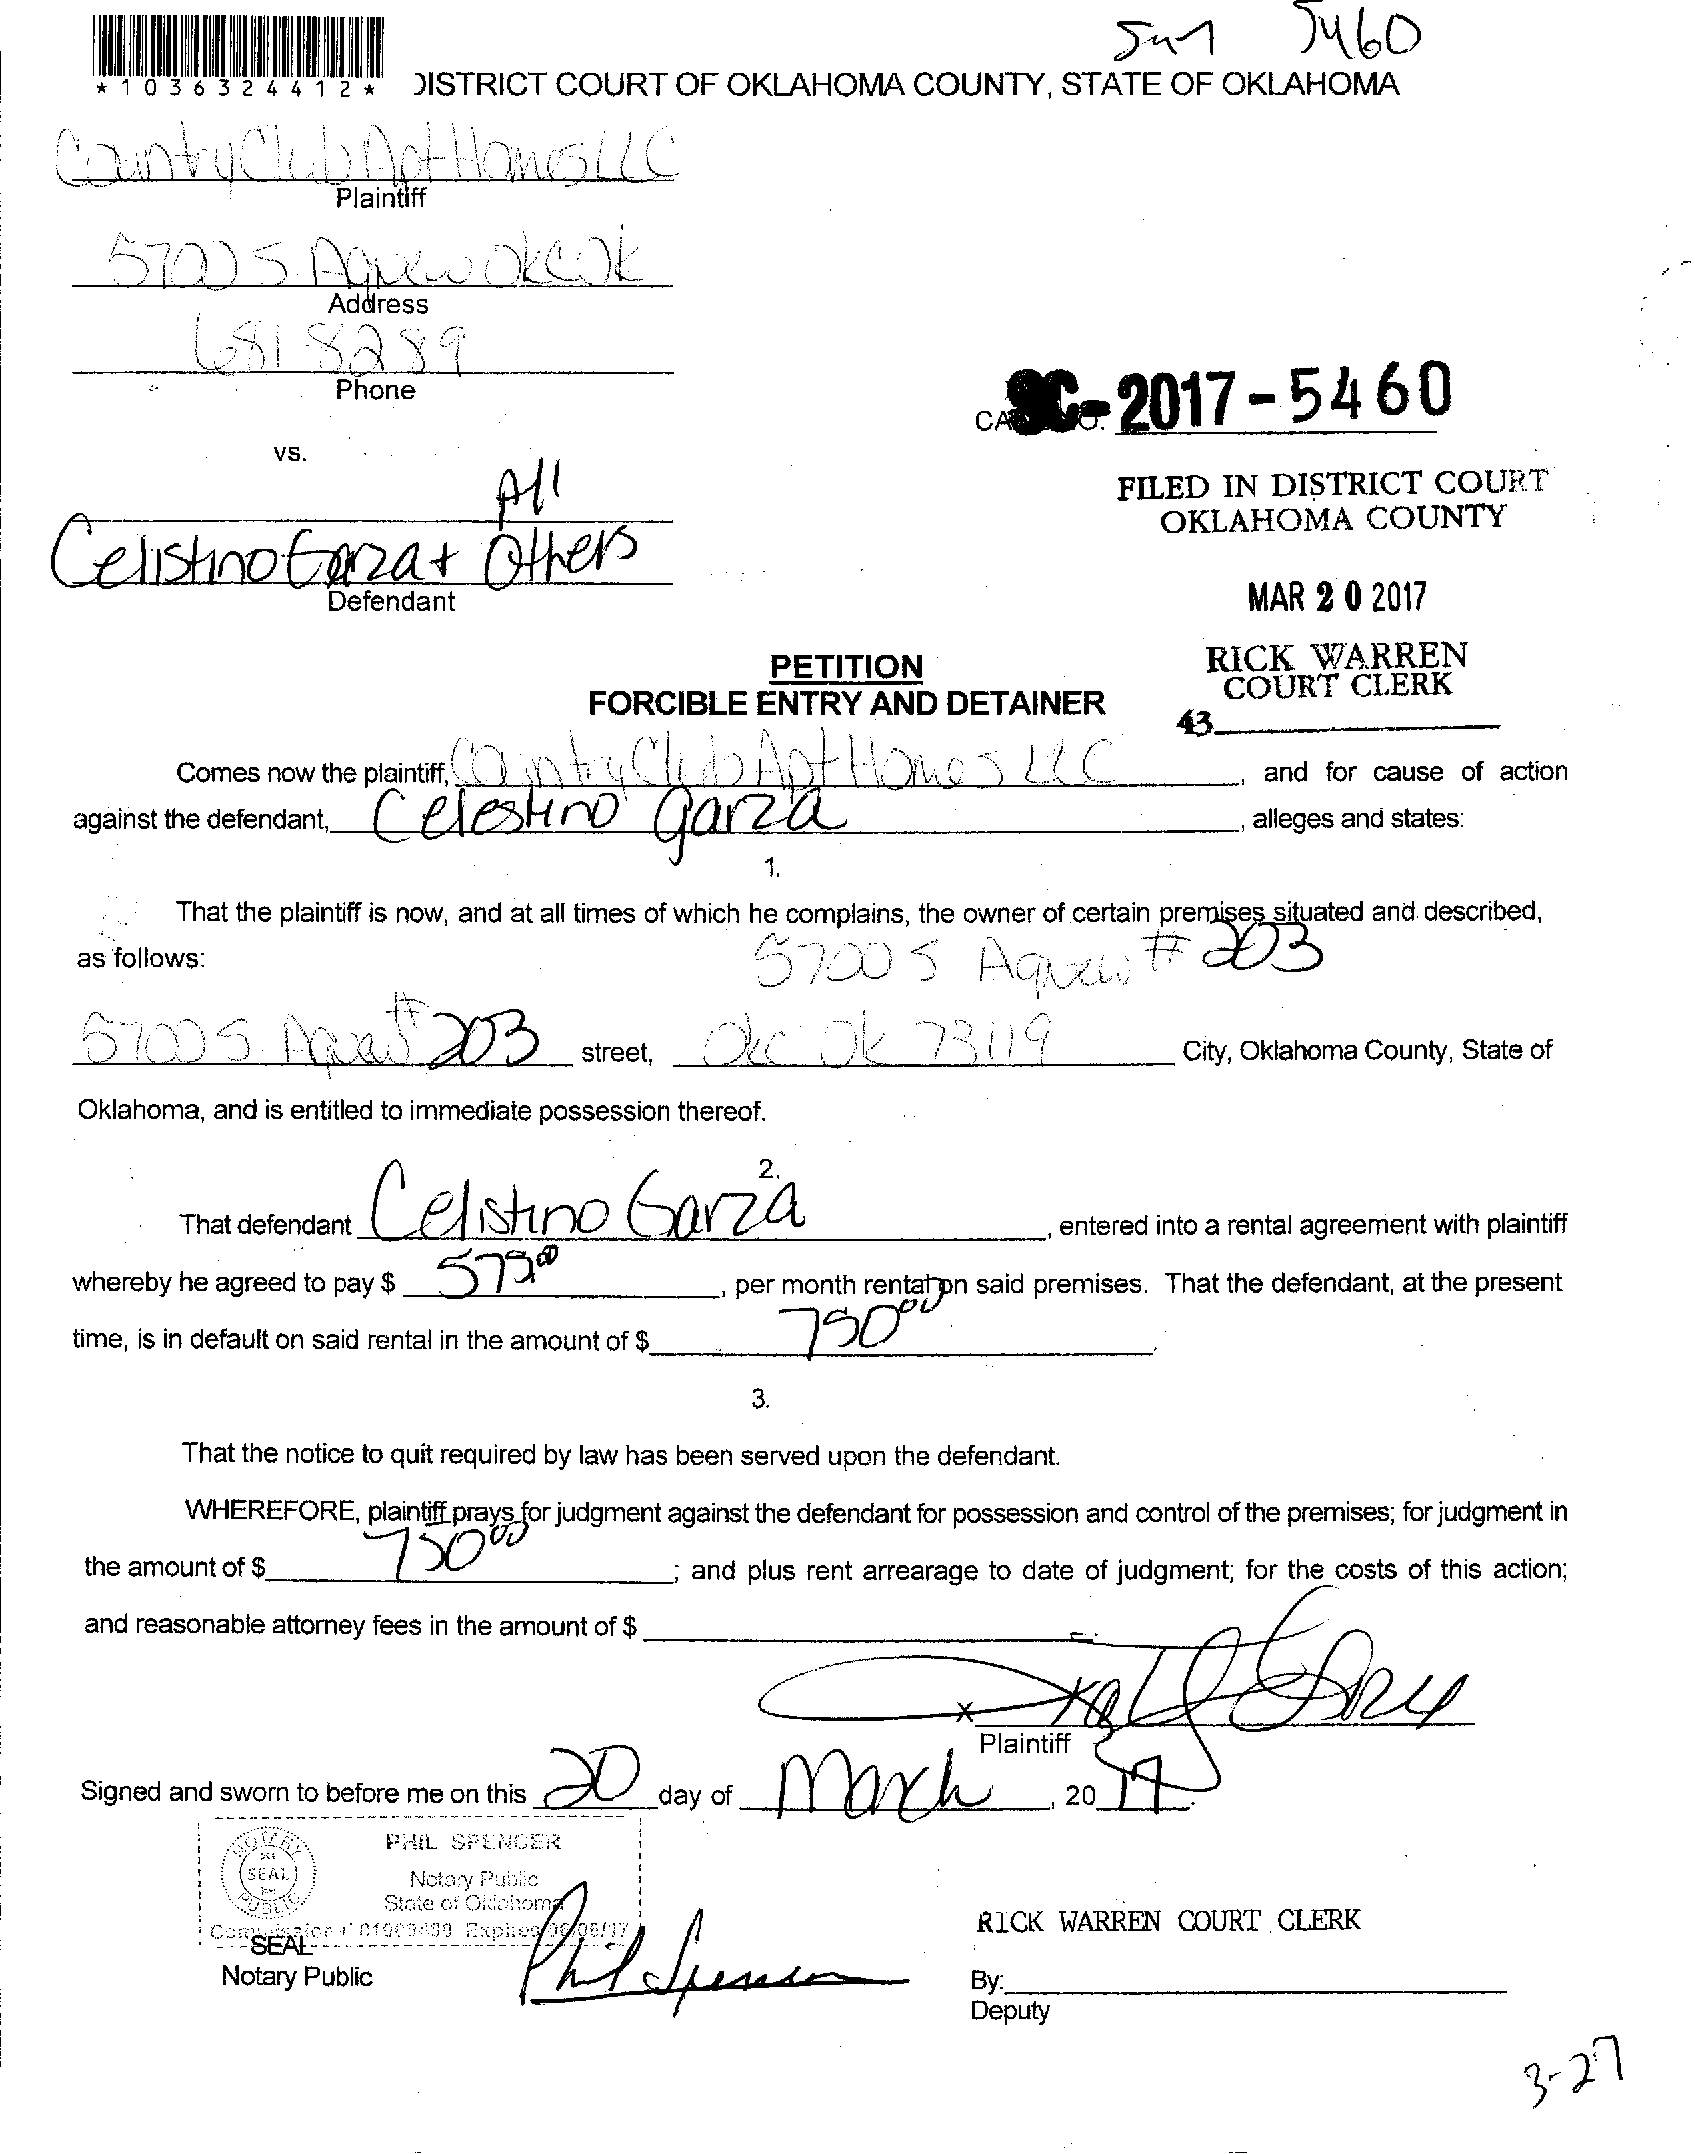 5460
*1036324412*
DISTRICT COURT OF OKLAHOMA COUNTY, STATE OF OKLAHOMA
Country Club Apt Homes LLC
Plaintiff
5700 S Agnew OKC OK
Address
681 8289
Phone
SC-2017-5460
vs.
All
FILED IN DISTRICT COURT
OKLAHOMA COUNTY
Celistino Garza + Others
Defendant
MAR 20 2017
RICK WARREN
COURT CLERK
43
PETITION
FORCIBLE ENTRY AND DETAINER
Comes now the plaintiff, Country Club Apt Homes LLC, and for cause of action
against the defendant, Celestino Garza, alleges and states:
1.
That the plaintiff is now, and at all times of which he complains, the owner of certain premises situated and described,
as follows: 5700 S Agnew #203
5700 S. Agnew #203 street, Okc Ok 73119 City, Oklahoma County, State of
Oklahoma, and is entitled to immediate possession thereof.
2.
That defendant Celistino Garza, entered into a rental agreement with plaintiff
whereby he agreed to pay $ 579.00, per month rental on said premises. That the defendant, at the present
time, is in default on said rental in the amount of $ 750.00.
3.
That the notice to quit required by law has been served upon the defendant.
WHEREFORE, plaintiff prays for judgment against the defendant for possession and control of the premises; for judgment in
the amount of $ 750.00; and plus rent arrearage to date of judgment; for the costs of this action;
and reasonable attorney fees in the amount of $
x
Plaintiff
Signed and sworn to before me on this 20 day of March, 2017.
NOTARY PUBLIC SEAL
PHIL SPENCER
Notary Public
State of Oklahoma
SEAL
Notary Public
Phil Spencer
RICK WARREN COURT CLERK
By:
Deputy
3-27